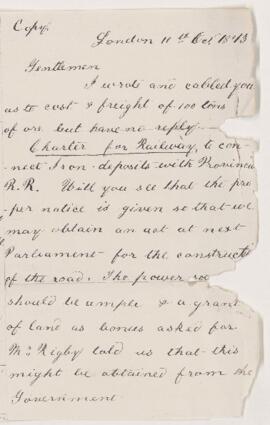 Copy.
London 11th Oct 1873
Gentlemen
I wrote and cabled you
as to cost & freight of 100 tons
of ore but have no reply.
Charter for Railway to con-
nect Iron deposits with Provincia
R.R. Will you see that the pro-
per notice is given so that we
may obtain an act at next
Parliament for the constructi
of the road. The power
should be ample & a grant
of land as bonus asked for
Mr. Rigby told us that this
might be obtained from the
Government